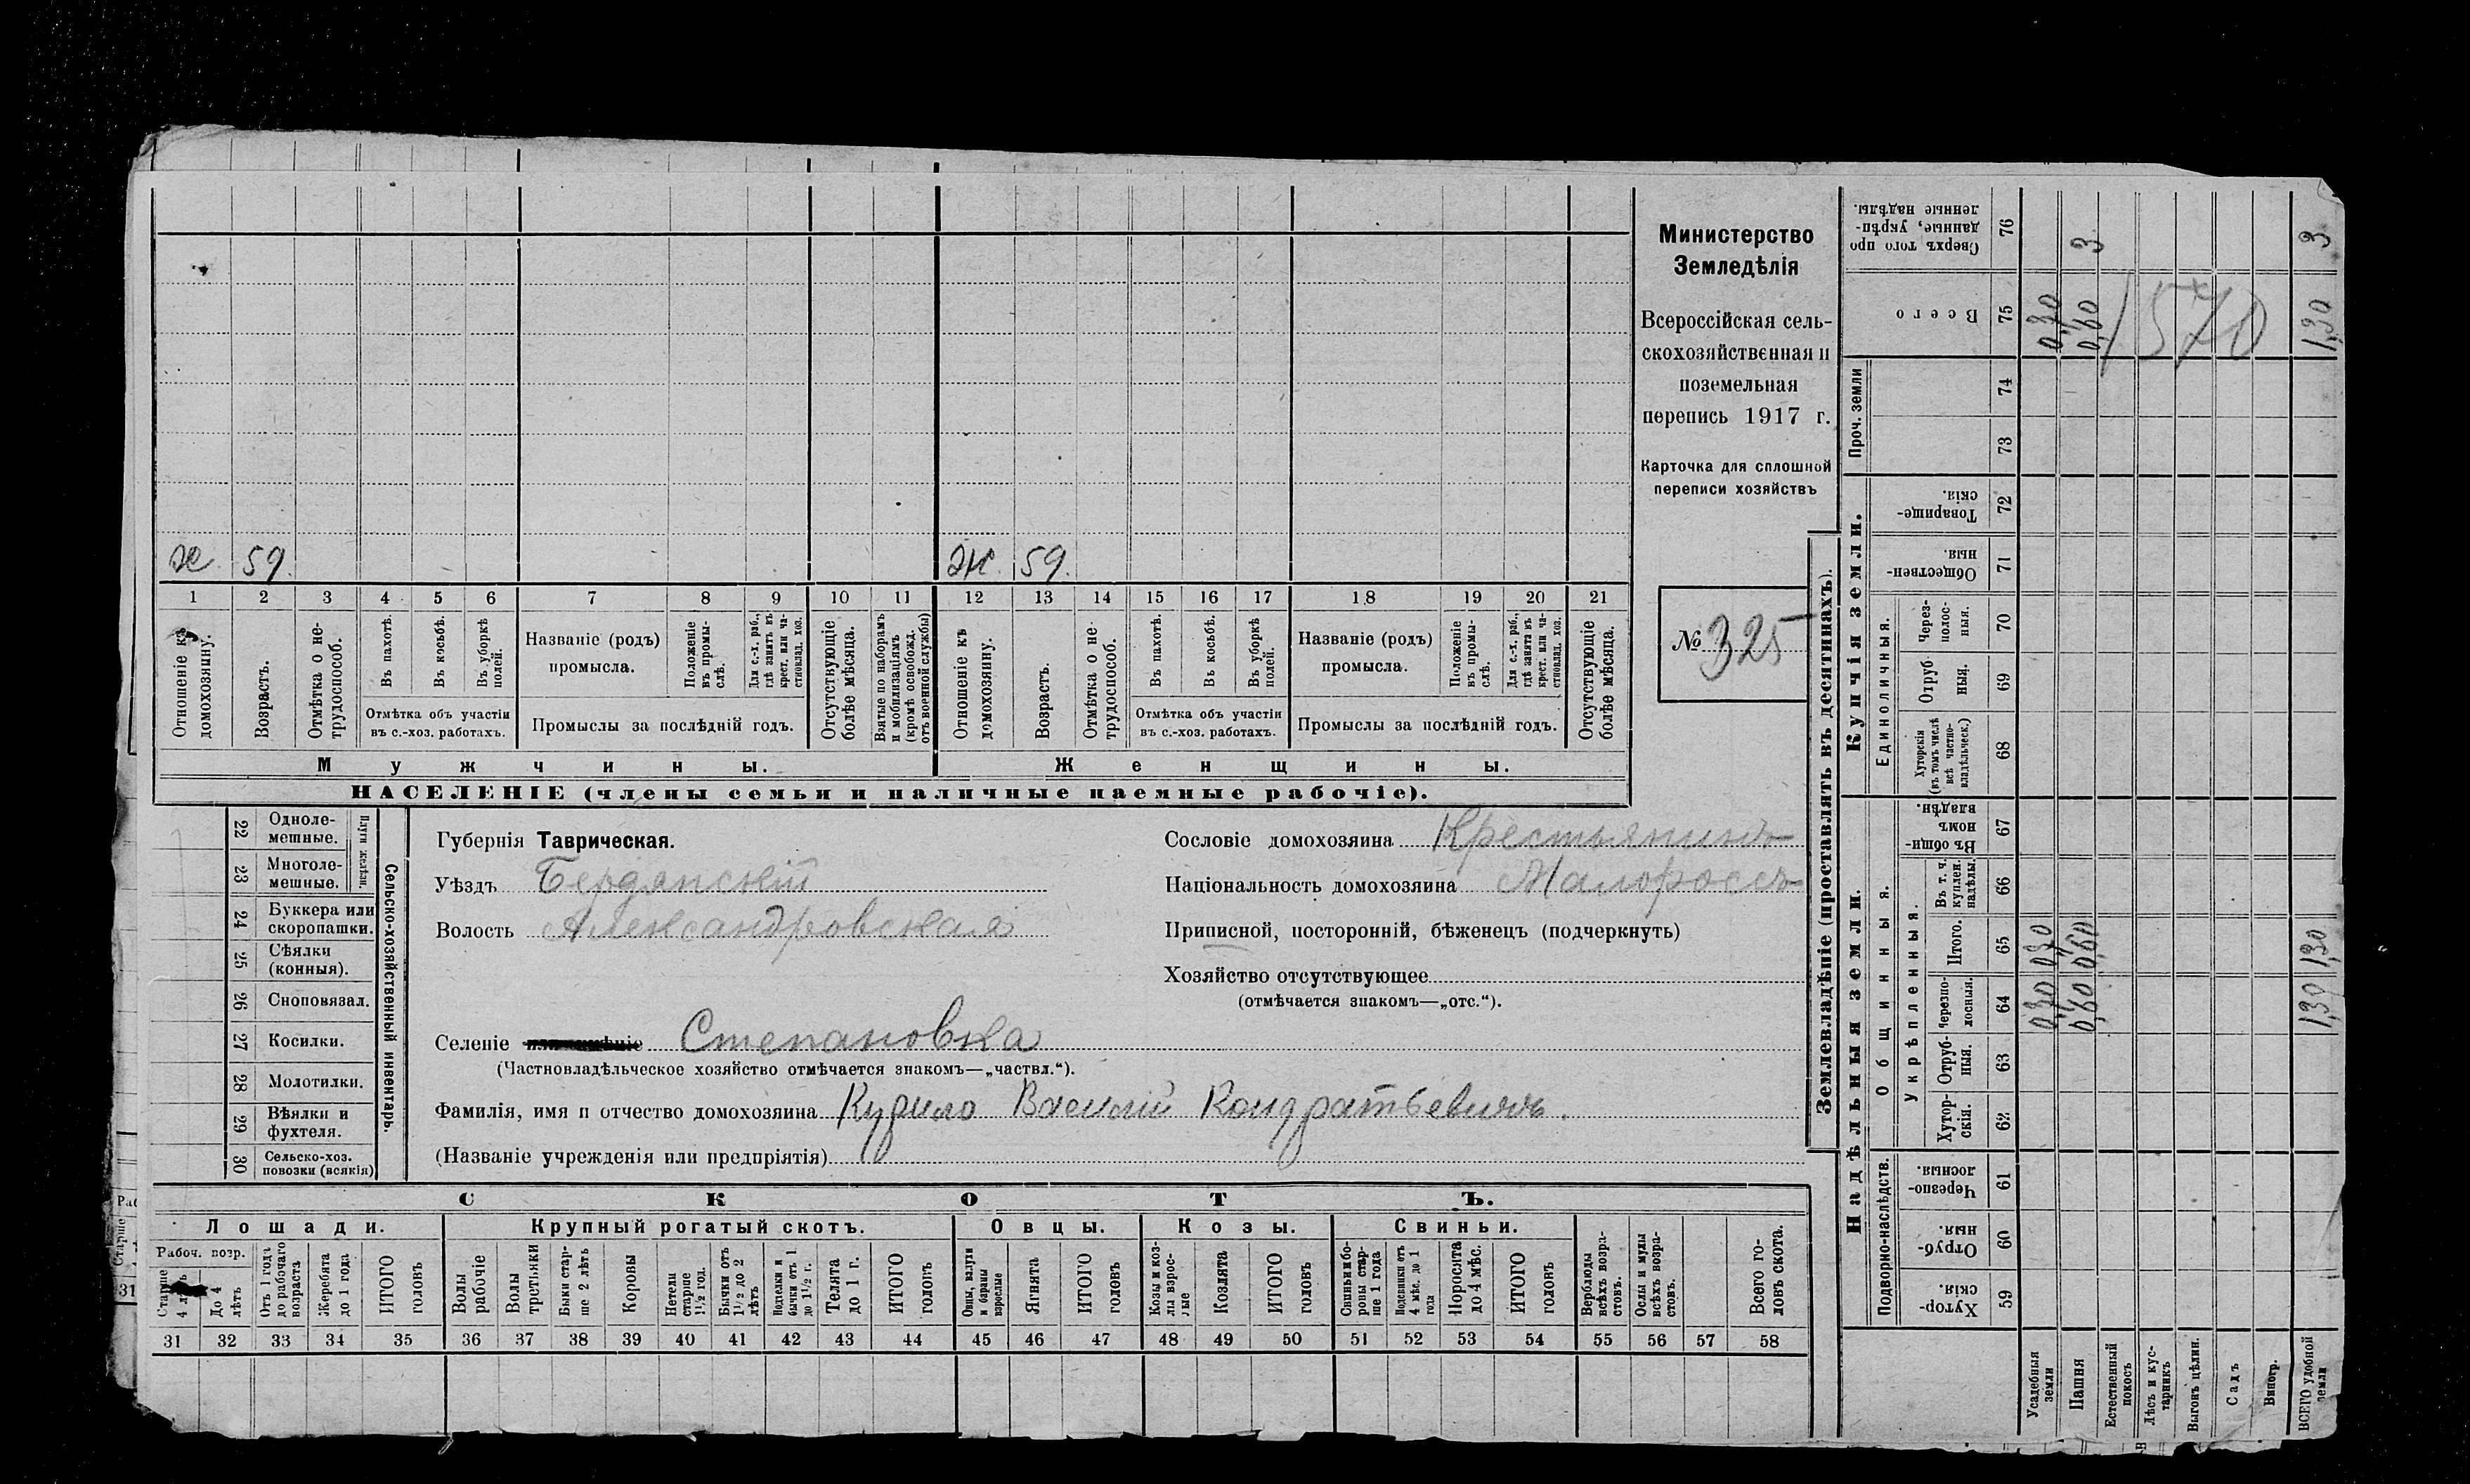 Министерство
Земледѣлія
Всероссійская сель-
скохозяйственная и
поземельная
перепись 1917 г.
Карточка для сплошной
переписи хозяйствъ
№ 325
х 59.
Ж. 59.
1 2 3 4 5 6 7 8 9 10 11 12 13 14 15 16 17 18 19 20 21
Отношеніе къ домохозяину.
Возрастъ.
Отмѣтка о не-трудоспособ.
Въ пахотѣ.
Въ косьбѣ.
Въ уборкѣ полей.
Отмѣтка объ участіи
въ с.-хоз. работахъ.
Названіе (родъ)
промысла.
Положеніе въ промы-слѣ.
Для с.-х. раб., гдѣ занятъ въ крест. или ча-стновлад. хоз.
Промыслы за послѣдній годъ.
Отсутствующіе болѣе мѣсяца.
Взятые по наборамъ и мобилизаціямъ (кромѣ освобожд. отъ военной службы)
Отношеніе къ домохозяину.
Возрастъ.
Отмѣтка о не-трудоспособ.
Въ пахотѣ.
Въ косьбѣ.
Въ уборкѣ полей.
Отмѣтка объ участіи
въ с.-хоз. работахъ.
Названіе (родъ)
промысла.
Положеніе въ промы-слѣ.
Для с.-х. раб., гдѣ занята въ крест. или ча-стновлад. хоз.
Промыслы за послѣдній годъ.
Отсутствующіе болѣе мѣсяца.
Мужчины.
Женщины.
НАСЕЛЕНІЕ (члены семьи и наличные наемные рабочіе).
22 Одноле-мешные.
23 Многоле-мешные.
Плуги желѣзн.
24 Буккера или скоропашки.
25 Сѣялки (конныя).
26 Сноповязал.
27 Косилки.
28 Молотилки.
29 Вѣялки и фухтеля.
30 Сельско-хоз. повозки (всякія)
Сельско-хозяйственный инвентарь.
Губернія Таврическая.
Уѣздъ Бердянскій
Волость Александровская
Сословіе домохозяина Крестьянинъ
Національность домохозяина Малороссъ
Приписной, посторонній, бѣженецъ (подчеркнуть)
Хозяйство отсутствующее
(отмѣчается знакомъ—„отс.“).
Селеніе Степановка
(Частновладѣльческое хозяйство отмѣчается знакомъ—„частвл.“).
Фамилія, имя и отчество домохозяина Курило Василій Кондратьевичъ.
(Названіе учрежденія или предпріятія)
СКОТЪ.
Лошади. Крупный рогатый скотъ. Овцы. Козы. Свиньи.
Рабоч. возр.
Старше 4 лѣтъ
До 4 лѣтъ
Отъ 1 года до рабочаго возраста
Жеребята до 1 года
ИТОГО головъ
Волы рабочіе
Волы третьяки
Быки стар-ше 2 лѣтъ
Коровы
Нетели старше 1½ год.
Бычки отъ 1½ до 2 лѣтъ
Подтелки и бычки отъ 1 до 1½ г.
Телята до 1 г.
ИТОГО головъ
Овцы, валухи и бараны взрослые
Ягнята
ИТОГО головъ
Козы и коз-лы взрос-лые
Козлята
ИТОГО головъ
Свиньи и бо-ровы стар-ше 1 года
Подсвинки отъ 4 мѣс. до 1 года
Поросята до 4 мѣс.
ИТОГО головъ
Верблюды всѣхъ возра-стовъ.
Ослы и мулы всѣхъ возра-стовъ.
Всего го-ловъ скота.
31 32 33 34 35 36 37 38 39 40 41 42 43 44 45 46 47 48 49 50 51 52 53 54 55 56 57 58
Землевладѣніе (проставлять въ десятинахъ).
Надѣльныя земли.
Купчія земли.
Проч. земли
Подворно-наслѣдств.
Общинныя.
Укрѣпленныя.
Единоличныя.
Сверхъ того про данные, укрѣп-ленные надѣлы. 76 3 3
Всего 75 0,30 0,60 1,30
1570
74
73
Товарище-скія. 72
Обществен-ныя. 71
Через-полос-ныя. 70
Отруб ныя. 69
Хуторскія (въ томъ числѣ всѣ частно-владѣльческ.) 68
Въ общи-номъ владѣн. 67
Въ т. ч. куплен. надѣлы. 66
Итого. 65 0,30 0,60 1,30
Черезпо-лосныя. 64 0,30 0,60 1,30
Отруб-ныя. 63
Хутор-скія. 62
Черезпо-лосныя. 61
Отруб-ныя. 60
Хутор-скія. 59
Усадебныя земли
Пашня
Естественный покосъ
Лѣсъ и кус-тарникъ
Выгонъ цѣлин.
Садъ
Виногр.
ВСЕГО удобной земли